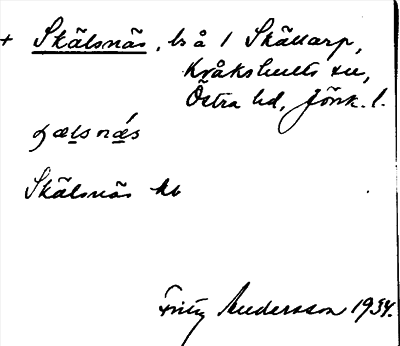 + Skälsnäs, bs å 1 Skällarp,
Kråkshults sn,
Östra hd, Jönk. l.
Skälsnäs kb
Fritz Andersson 1934.